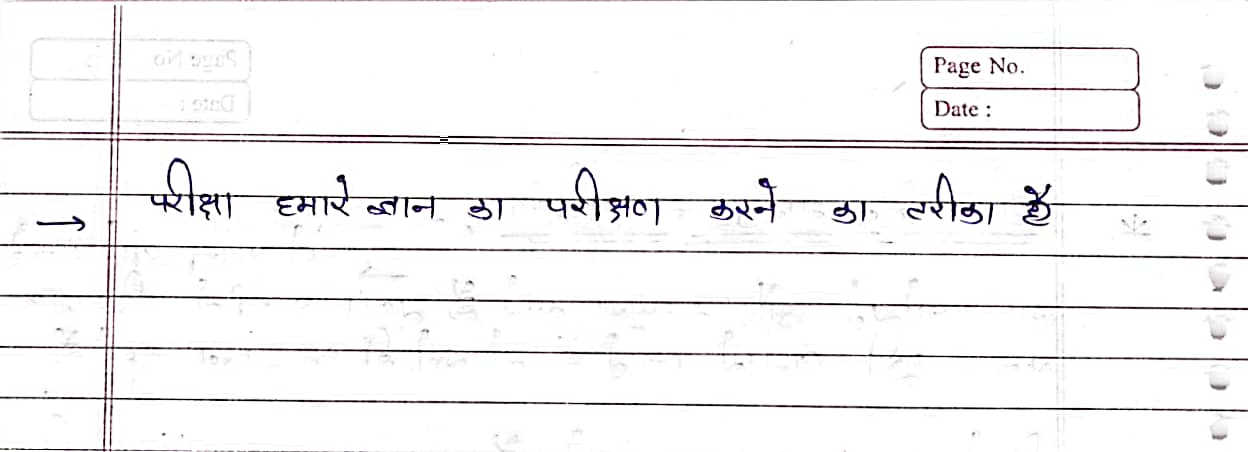 Page No.
Date :
→ परीक्षा हमारे ज्ञान का परीक्षण करने का तरीका है